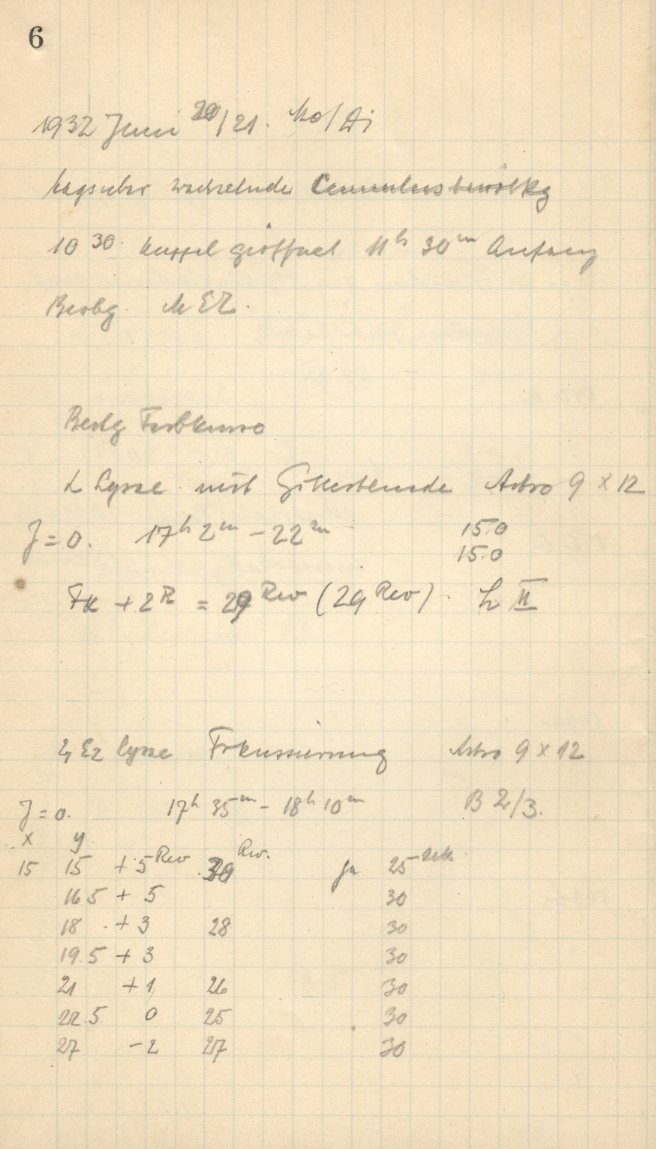 6
1932 Juni 20/21. Mo/Di
tagsüber wachselnde Cumulusbewölkg
10 30 Kuppel geöffnet 11h 30m Anfang
Beobg. MEZ.
Beobg
α Lyrae mit Gitterblende Astro 9 x 12
J=0. 17h 2m - 22m 15.0
15.0
+ 2R = 29 Rev (29 Rev). L II
ε1 ε2 Lyrae Fokussierung Astro 9 x 12
J=0. 17h 35m - 18h 10m B 2/3.
x y
15 15 + 5 Rev Rev. je 25 sek
16.5 + 5 30
18 + 3 28 30
19.5 + 3 30
21 + 1 26 30
22.5 0 25 30
27 - 2 30